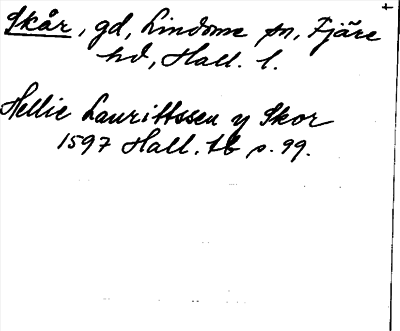 Skår, gd, Lindome sn, Fjäre
hd, Hall. l.
Hellie Laurittssen y Skor
1597 Hall. tb s. 99.